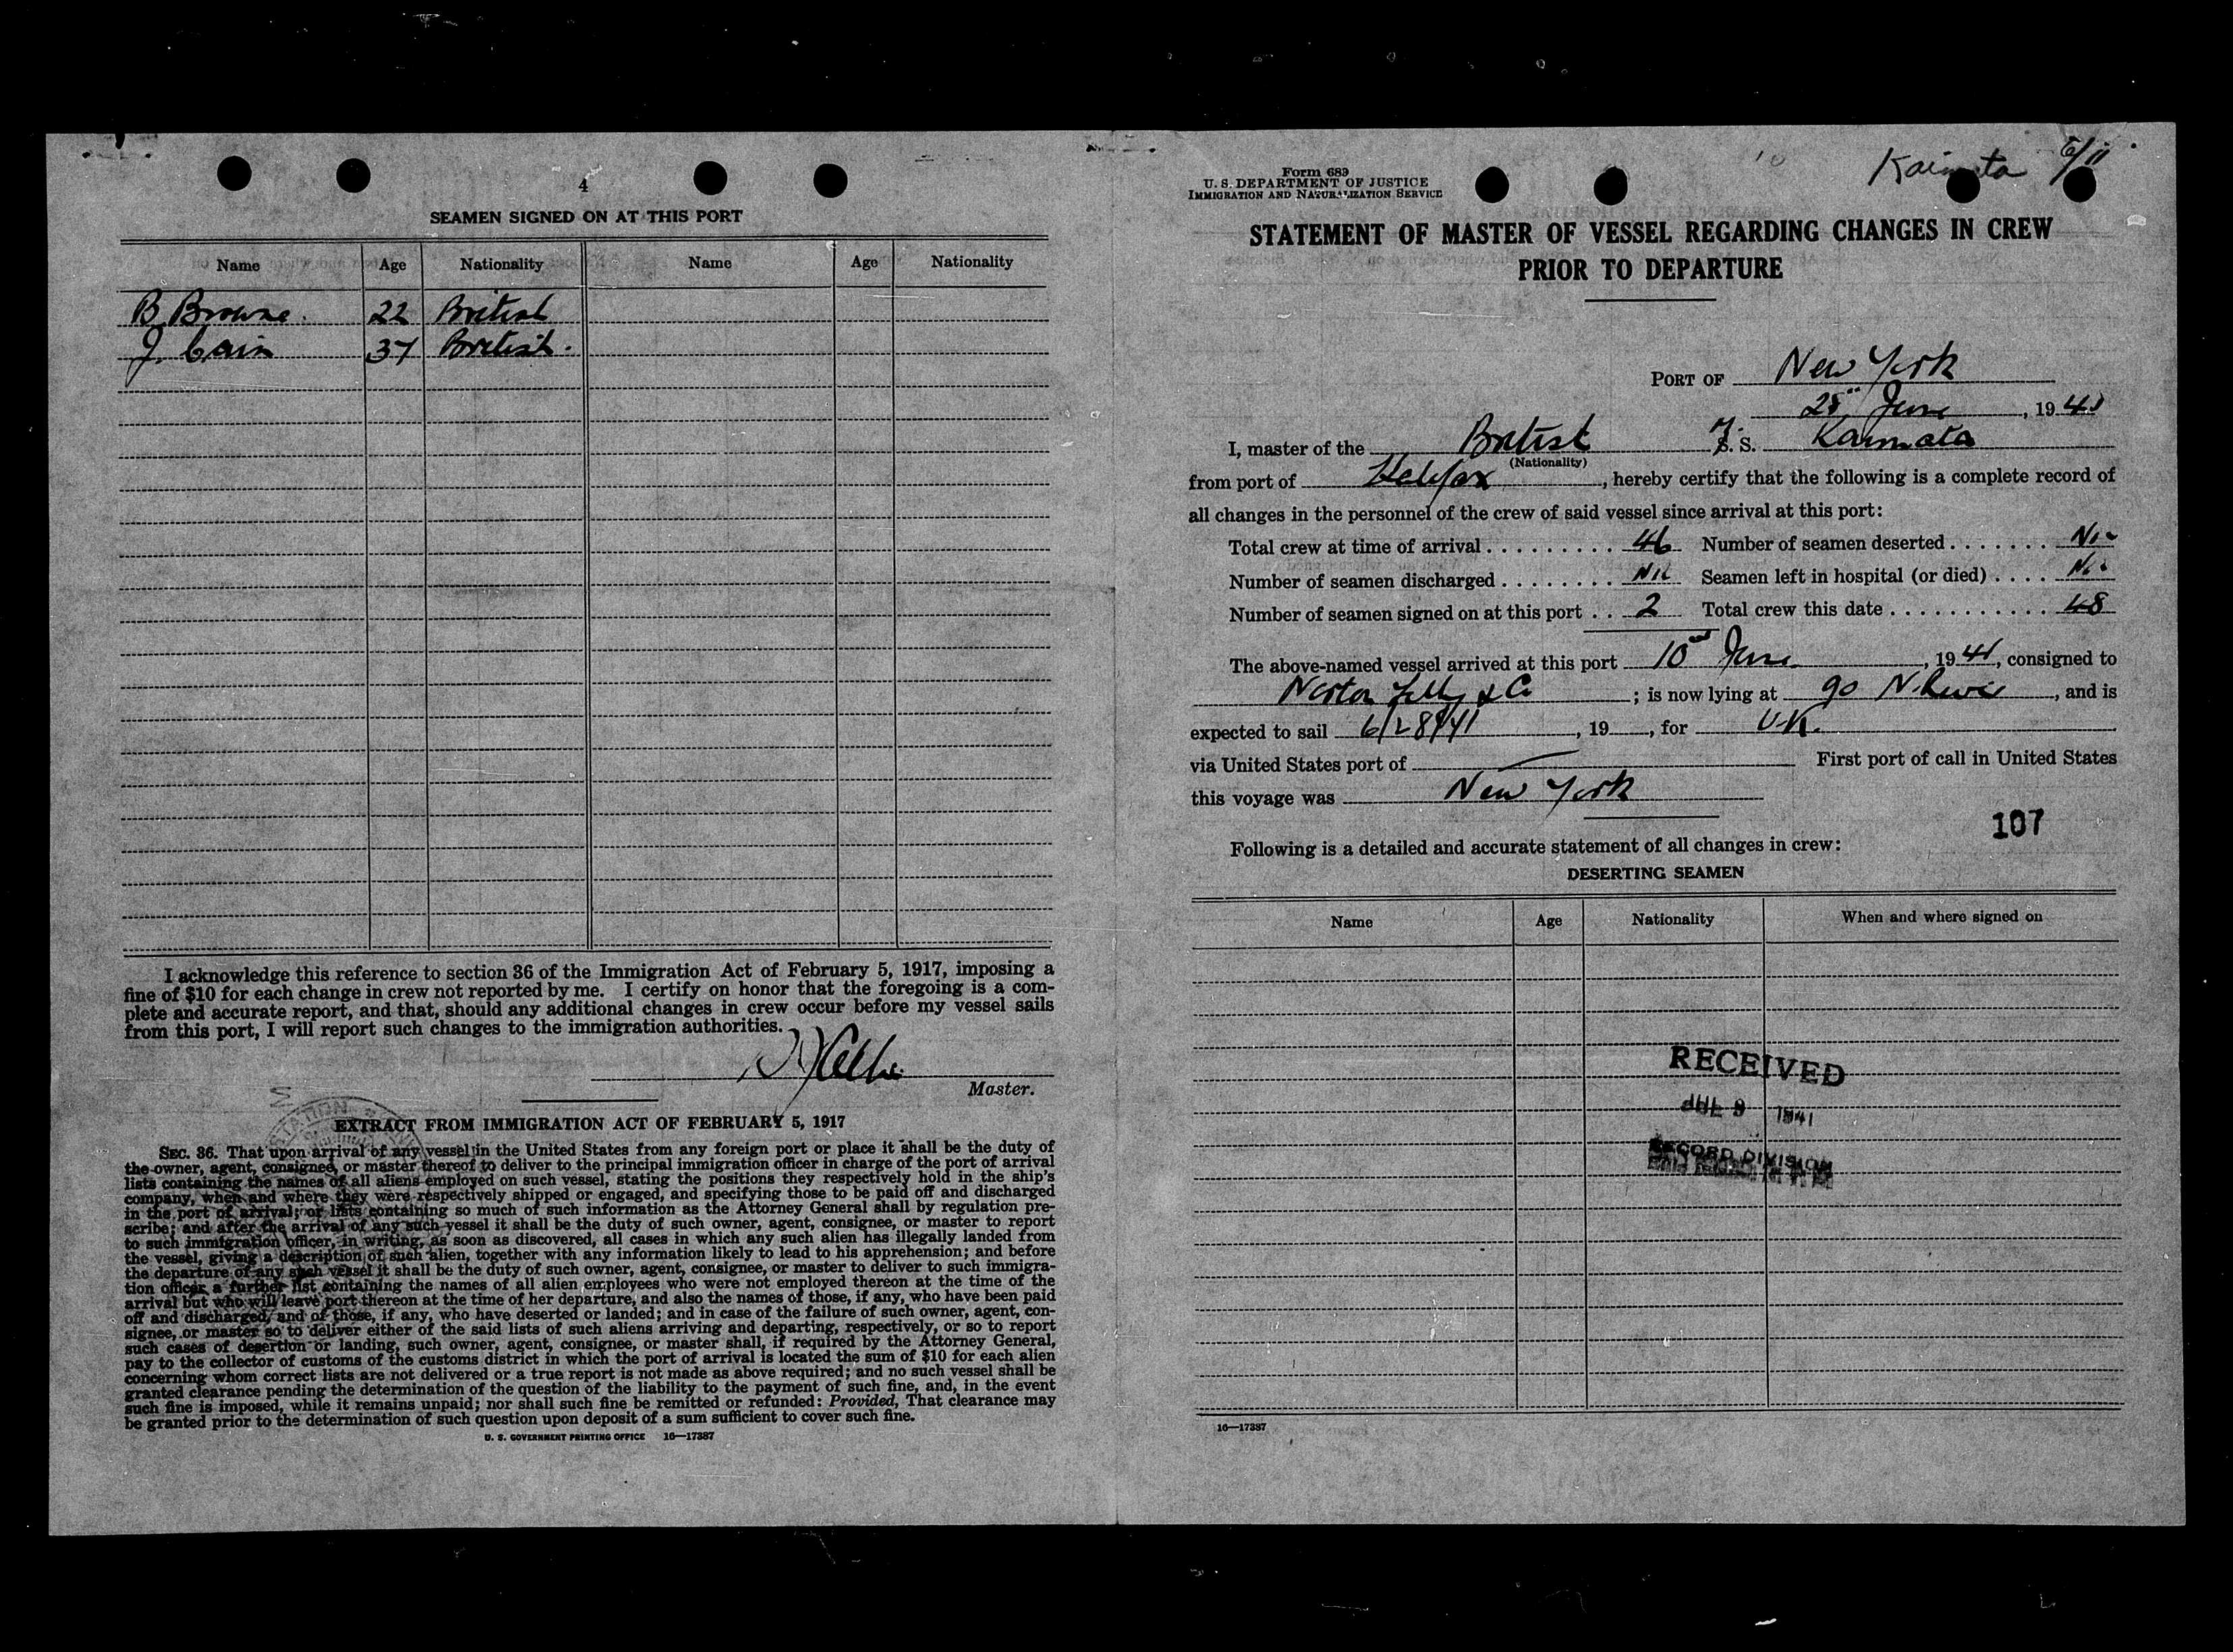 4
SEAMEN SIGNED ON AT THIS PORT
Name Age Nationality Name Age Nationality
B Browne. 22 British
J. Cain 37 British.
I acknowledge this reference to section 36 of the Immigration Act of February 5, 1917, imposing a
fine of $10 for each change in crew not reported by me. I certify on honor that the foregoing is a com-
plete and accurate report, and that, should any additional changes in crew occur before my vessel sails
from this port, I will report such changes to the immigration authorities.
Master.
EXTRACT FROM IMMIGRATION ACT OF FEBRUARY 5, 1917
SEC. 36. That upon arrival of any vessel in the United States from any foreign port or place it shall be the duty of
the owner, agent, consignee, or master thereof to deliver to the principal immigration officer in charge of the port of arrival
lists containing the names of all aliens employed on such vessel, stating the positions they respectively hold in the ship's
company, when and where they were respectively shipped or engaged, and specifying those to be paid off and discharged
in the port of arrival; or lists containing so much of such information as the Attorney General shall by regulation pre-
scribe; and after the arrival of any such vessel it shall be the duty of such owner, agent, consignee, or master to report
to such immigration officer, in writing, as soon as discovered, all cases in which any such alien has illegally landed from
the vessel, giving a description of such alien, together with any information likely to lead to his apprehension; and before
the departure of any such vessel it shall be the duty of such owner, agent, consignee, or master to deliver to such immigra-
tion officer a further list containing the names of all alien employees who were not employed thereon at the time of the
arrival but who will leave port thereon at the time of her departure, and also the names of those, if any, who have been paid
off and discharged, and of those, if any, who have deserted or landed; and in case of the failure of such owner, agent, con-
signee, or master so to deliver either of the said lists of such aliens arriving and departing, respectively, or so to report
such cases of desertion or landing, such owner, agent, consignee, or master shall, if required by the Attorney General,
pay to the collector of customs of the customs district in which the port of arrival is located the sum of $10 for each alien
concerning whom correct lists are not delivered or a true report is not made as above required; and no such vessel shall be
granted clearance pending the determination of the question of the liability to the payment of such fine, and, in the event
such fine is imposed, while it remains unpaid; nor shall such fine be remitted or refunded: Provided, That clearance may
be granted prior to the determination of such question upon deposit of a sum sufficient to cover such fine.
U. S. GOVERNMENT PRINTING OFFICE 16—17387
Form 689
U. S. DEPARTMENT OF JUSTICE
IMMIGRATION AND NATURALIZATION SERVICE
Kaimata 6/11
STATEMENT OF MASTER OF VESSEL REGARDING CHANGES IN CREW
PRIOR TO DEPARTURE
PORT OF New York
28th June, 1941
I, master of the British M. S. S. Kaimata
(Nationality)
from port of Halifax, hereby certify that the following is a complete record of
all changes in the personnel of the crew of said vessel since arrival at this port:
Total crew at time of arrival . . . . . . . . . 46 Number of seamen deserted . . . . . . . Nil
Number of seamen discharged . . . . . . . . Nil Seamen left in hospital (or died) . . . . Nil
Number of seamen signed on at this port . . 2 Total crew this date . . . . . . . . . . . 48
The above-named vessel arrived at this port 10th June, 1941, consigned to
Norton Lilly & Co; is now lying at 90 N. River, and is
expected to sail 6/28/41, 19 , for U.K.
via United States port of — First port of call in United States
this voyage was New York
107
Following is a detailed and accurate statement of all changes in crew:
DESERTING SEAMEN
Name Age Nationality When and where signed on
RECEIVED
JUL 9 1941
RECORD DIVISION
16—17387